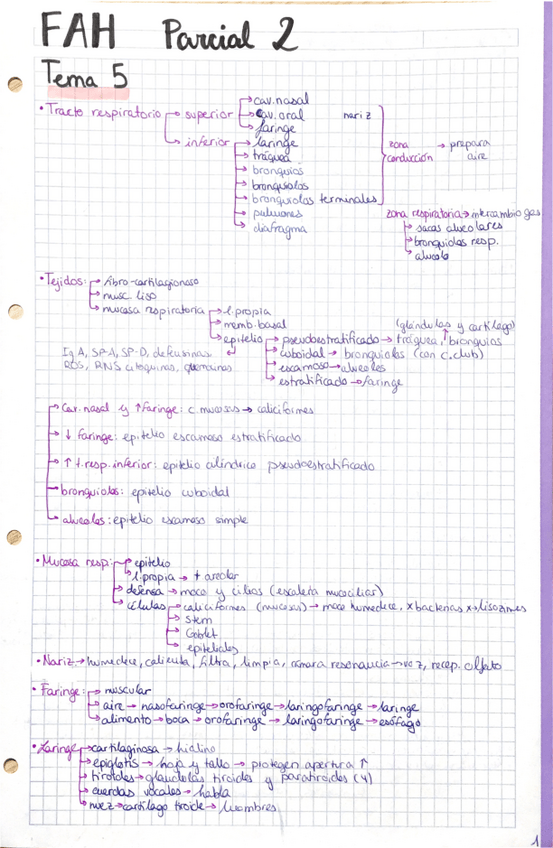 FAH Parcial 2
Tema 5
• Tracto respiratorio → superior → cav. nasal
→ cav. oral nariz
→ faringe
→ inferior → laringe
→ tráquea
→ bronquios
→ bronquiolos
→ bronquiolos terminales
→ pulmones
→ diafragma
zona conducción → prepara aire
zona respiratoria → intercambio gas
→ sacos alveolares
→ bronquiolos resp.
→ alveolo
• Tejidos: → fibro-cartilaginoso
→ musc. liso
→ mucosa respiratoria → l. propia
→ memb. basal
→ epitelio → pseudoestratificado → tráquea, bronquios
(glándulas y cartílago)
→ cuboidal → bronquiolos (con c. club)
→ escamoso → alveolos
→ estratificado → faringe
IgA, SP-A, SP-D, defensinas
ROS, RNS citoquinas, quemoquinas
→ Cav. nasal y ↑ faringe: c. mucosas → caliciformes
→ ↓ faringe: epitelio escamoso estratificado
→ ↑ t. resp. inferior: epitelio cilíndrico pseudoestratificado
→ bronquiolos: epitelio cuboidal
→ alveolos: epitelio escamoso simple
• Mucosa resp: → epitelio
→ l. propia → t areolar
→ defensa → moco y cilios (escalera mucociliar)
→ células → caliciformes (mucosas) → moco humedece, x bacterias x lisozimas
→ stem
→ Goblet
→ epiteliales
• Nariz → humedece, calienta, filtra, limpia, cámara resonancia → voz, recep. olfato
• Faringe: → muscular
→ aire → nasofaringe → orofaringe → laringofaringe → laringe
→ alimento → boca → orofaringe → laringofaringe → esófago
• Laringe → cartilaginosa → hialino
→ epiglotis → hoja y tallo → protegen apertura ↑
→ tiroides → glándulas tiroides y paratiroides (4)
→ cuerdas vocales → habla
→ nuez → cartílago tiroide → hombres
1